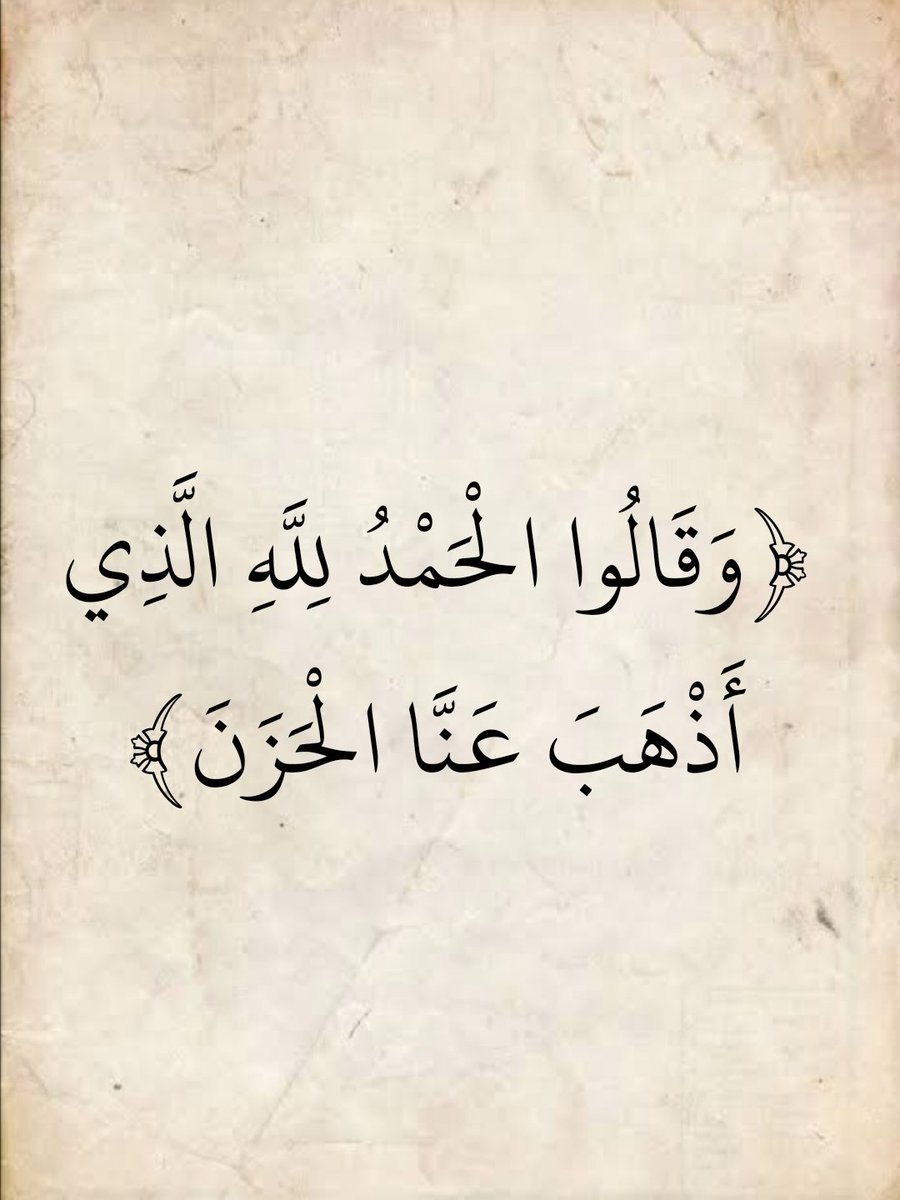 ﴿وَقَالُوا الْحَمْدُ لِلَّهِ الَّذِي
أَذْهَبَ عَنَّا الْحَزَنَ﴾